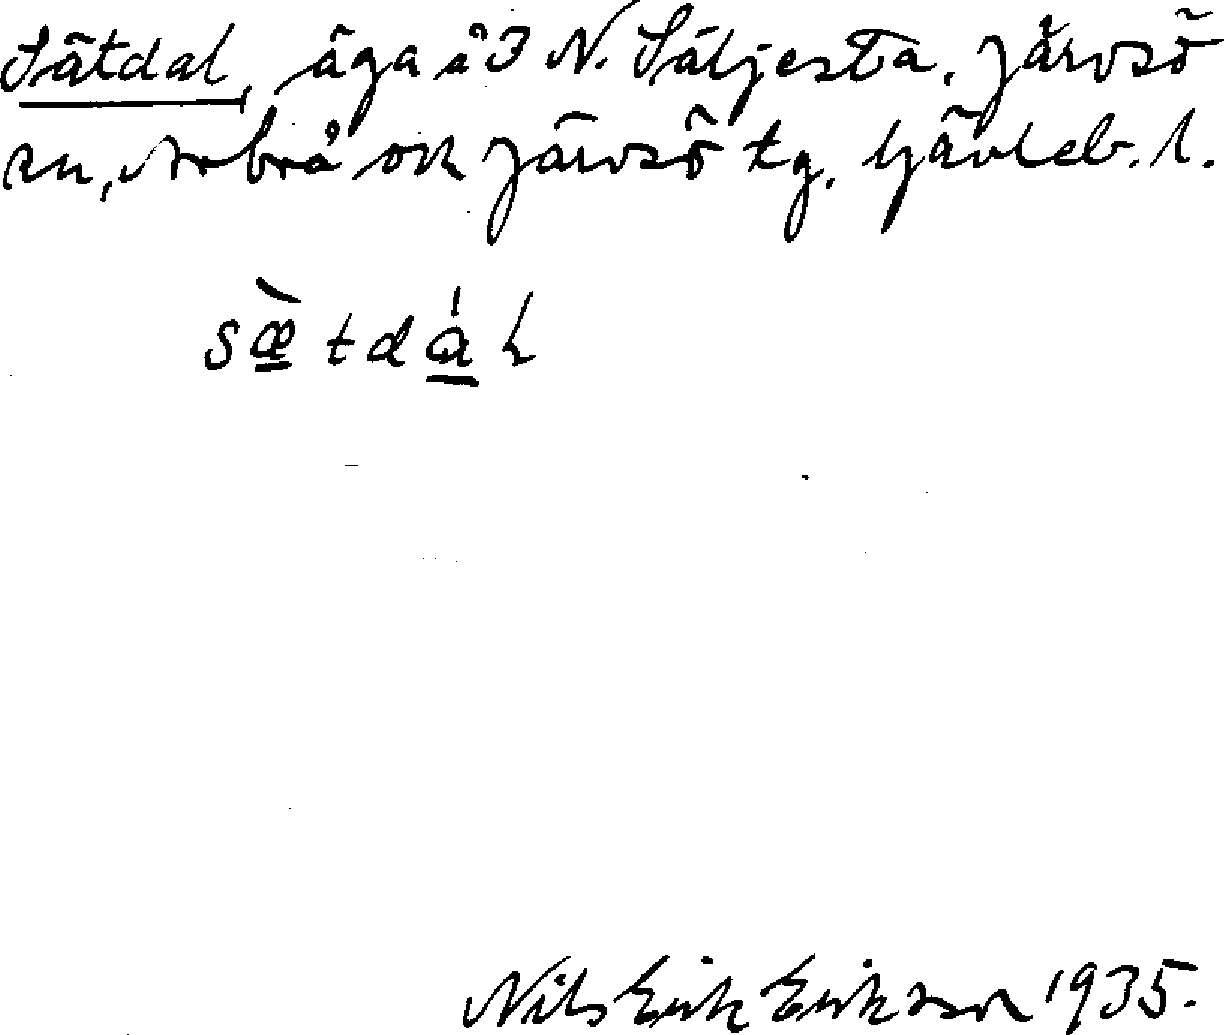 Sätdal, äga å 3 N. Säljesta, Järvsö
sn, Arbrå och Järvsö tg, Gävleb. l.
sæ̀tdál
Nils Erik Eriksson 1935.